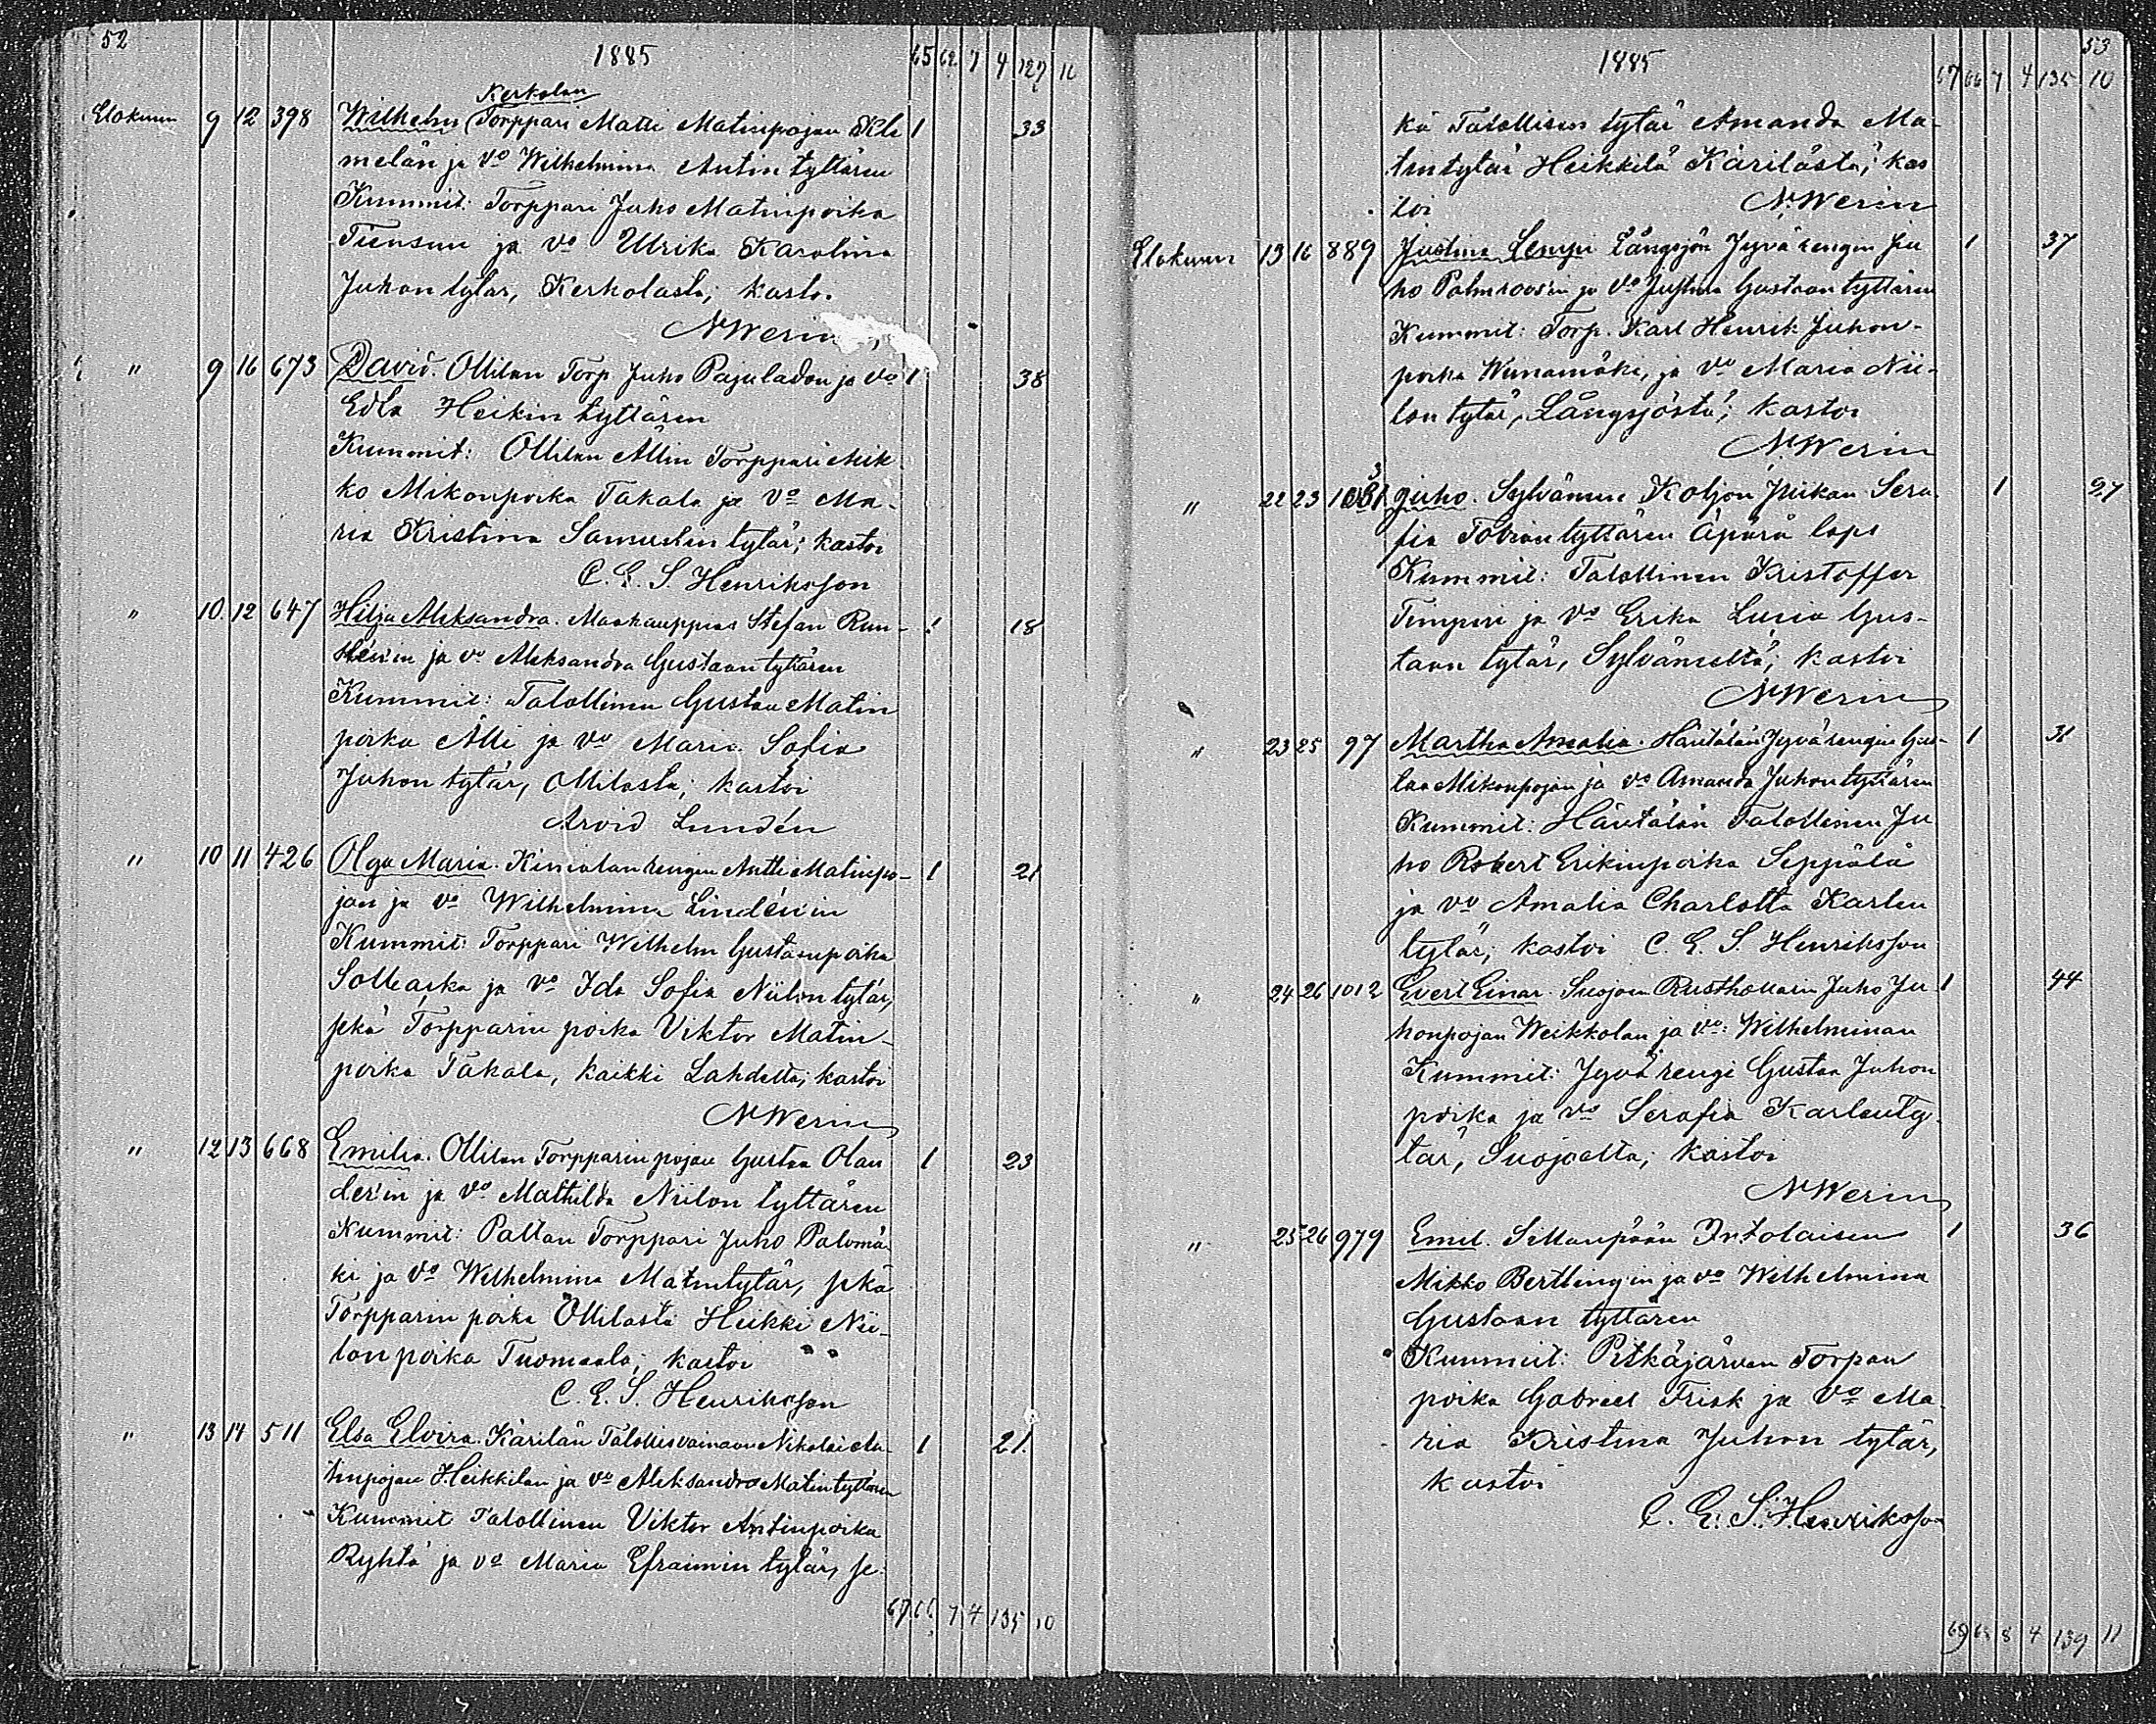 52
1885 65 62 7 4 127 11
Kerkolan
Elokuun 9 12 398 Wilhelm Torppari Matti Matinpojan Kle 1 33
melän ja vo Wilhelmina Antin tyttären
Kummit: Torppari Juho Matinpoika
Tiensuu ja vo Ulrika Karolina
Juhon tytär, Kerkolasta; kastoi
N Werin
" 9 16 673 David. Ollilan Torp Juho Pajuladon ja vo 1 38
Edla Heikin tyttären
Kummit: Ollilan Allin Torppari Mik
ko Mikonpoika Takala ja vo Ma-
ria Kristina Samuelin tytär; kastoi
C. E. S. Henriksson
" 10 12 647 Hilja Aleksandra. Maakauppias Stefan Run- 1 18
ja vo Aleksandra Gustaan tyttären
Kummit: Talollinen Gustaa Matin
poika Alli ja vo Maria Sofia
Juhon tytär, Ollilasta; kastoi
Arvid Lundén
" 10 11 426 Olga Maria. rengin Antti Matinpo- 1 21
jan ja vo Wilhelmina Lindén'in
Kummit: Torppari Wilhelm Gustanpoika
ja vo Ida Sofia Niilon tytär,
sekä Torpparin poika Viktor Matin-
poika Takala, kaikki Lahdelta; kastoi
N Werin
" 12 13 668 Emilia. Ollilan Torpparin pojan Gustaa Olan 1 23
der'in ja vo Mathilda Niilon tyttären
Kummit: Paltan Torppari Juho Palomä-
ki ja vo Wilhelmina Matintytär, sekä
Torpparin poika Ollilasta Heikki Nii-
lon poika Tuomaala; kastoi
C. E. S. Henriksson
" 13 14 511 Elsa Elvira. Kärilän Talollisvainaan Nikolai An- 1 21
tinpojan Heikkilan ja vo Aleksandra Matin tyttären
Kummit Talollinen Viktor Antinpoika
Ryhtä ja vo Maria Efraimin tytär, se
67 66 7 4 135 10
53
1885 67 66 7 4 135 10
kä Talollisen tytär Amanda Ma-
tintytär Heikkilä Kärilästä; kas
toi N. Werin
Elokuun 13 16 889 Justina Lempi Långsjön Jyvärengin Ju 1 37
ho Palmroos'in ja vo Justina Gustaan tyttären
Kummit: Torp. Karl Henrik Juhon-
poika Winnamäki, ja vo Maria Nii-
lon tytär, Långsjöstä; kastoi
N. Werin
" 22 23 Juho. Sylvänen Koljon Piikan Sera 1 27
fia Tobiaan tyttären Äpärä laps
Kummit: Talollinen Kristoffer
Timperi ja vo Erika Lusia Gus-
taan tytär, Sylväneltä; kastoi
N Werin
" 23 25 97 Martha Amalia. Häntälän Jyvärengin Gus- 1 31
taa Mikonpojan ja vo Amanda Juhon tyttären
Kummit: Häntälän Talollinen Ju
ho Robert Erikinpoika Seppälä
ja vo Amalia Charlotta Karlen
tytär; kastoi C. E. S. Henriksson
" 24 26 1012 Evert Einar. Suojoen Rusthollarin Juho Ju 1 44
honpojan Weikkolan ja vo: Wilhelminan
Kummit: Jyvä rengi Gustaa Juhon
poika ja vo Serafia Karlenty-
tär, Suojoelta; kastoi
N Werin
" 25 26 979 Emil. Sillanpään Intolaisen 1 36
Mikko Bertling'in ja vo Wilhelmina
Gustaan tyttären
Kummit: Pitkäjärven Torpan
poika Gabriel Frisk ja vo Ma-
ria Kristina Juhon tytär,
kastoi
C. E. S. Henriksson
69 8 4 139 11